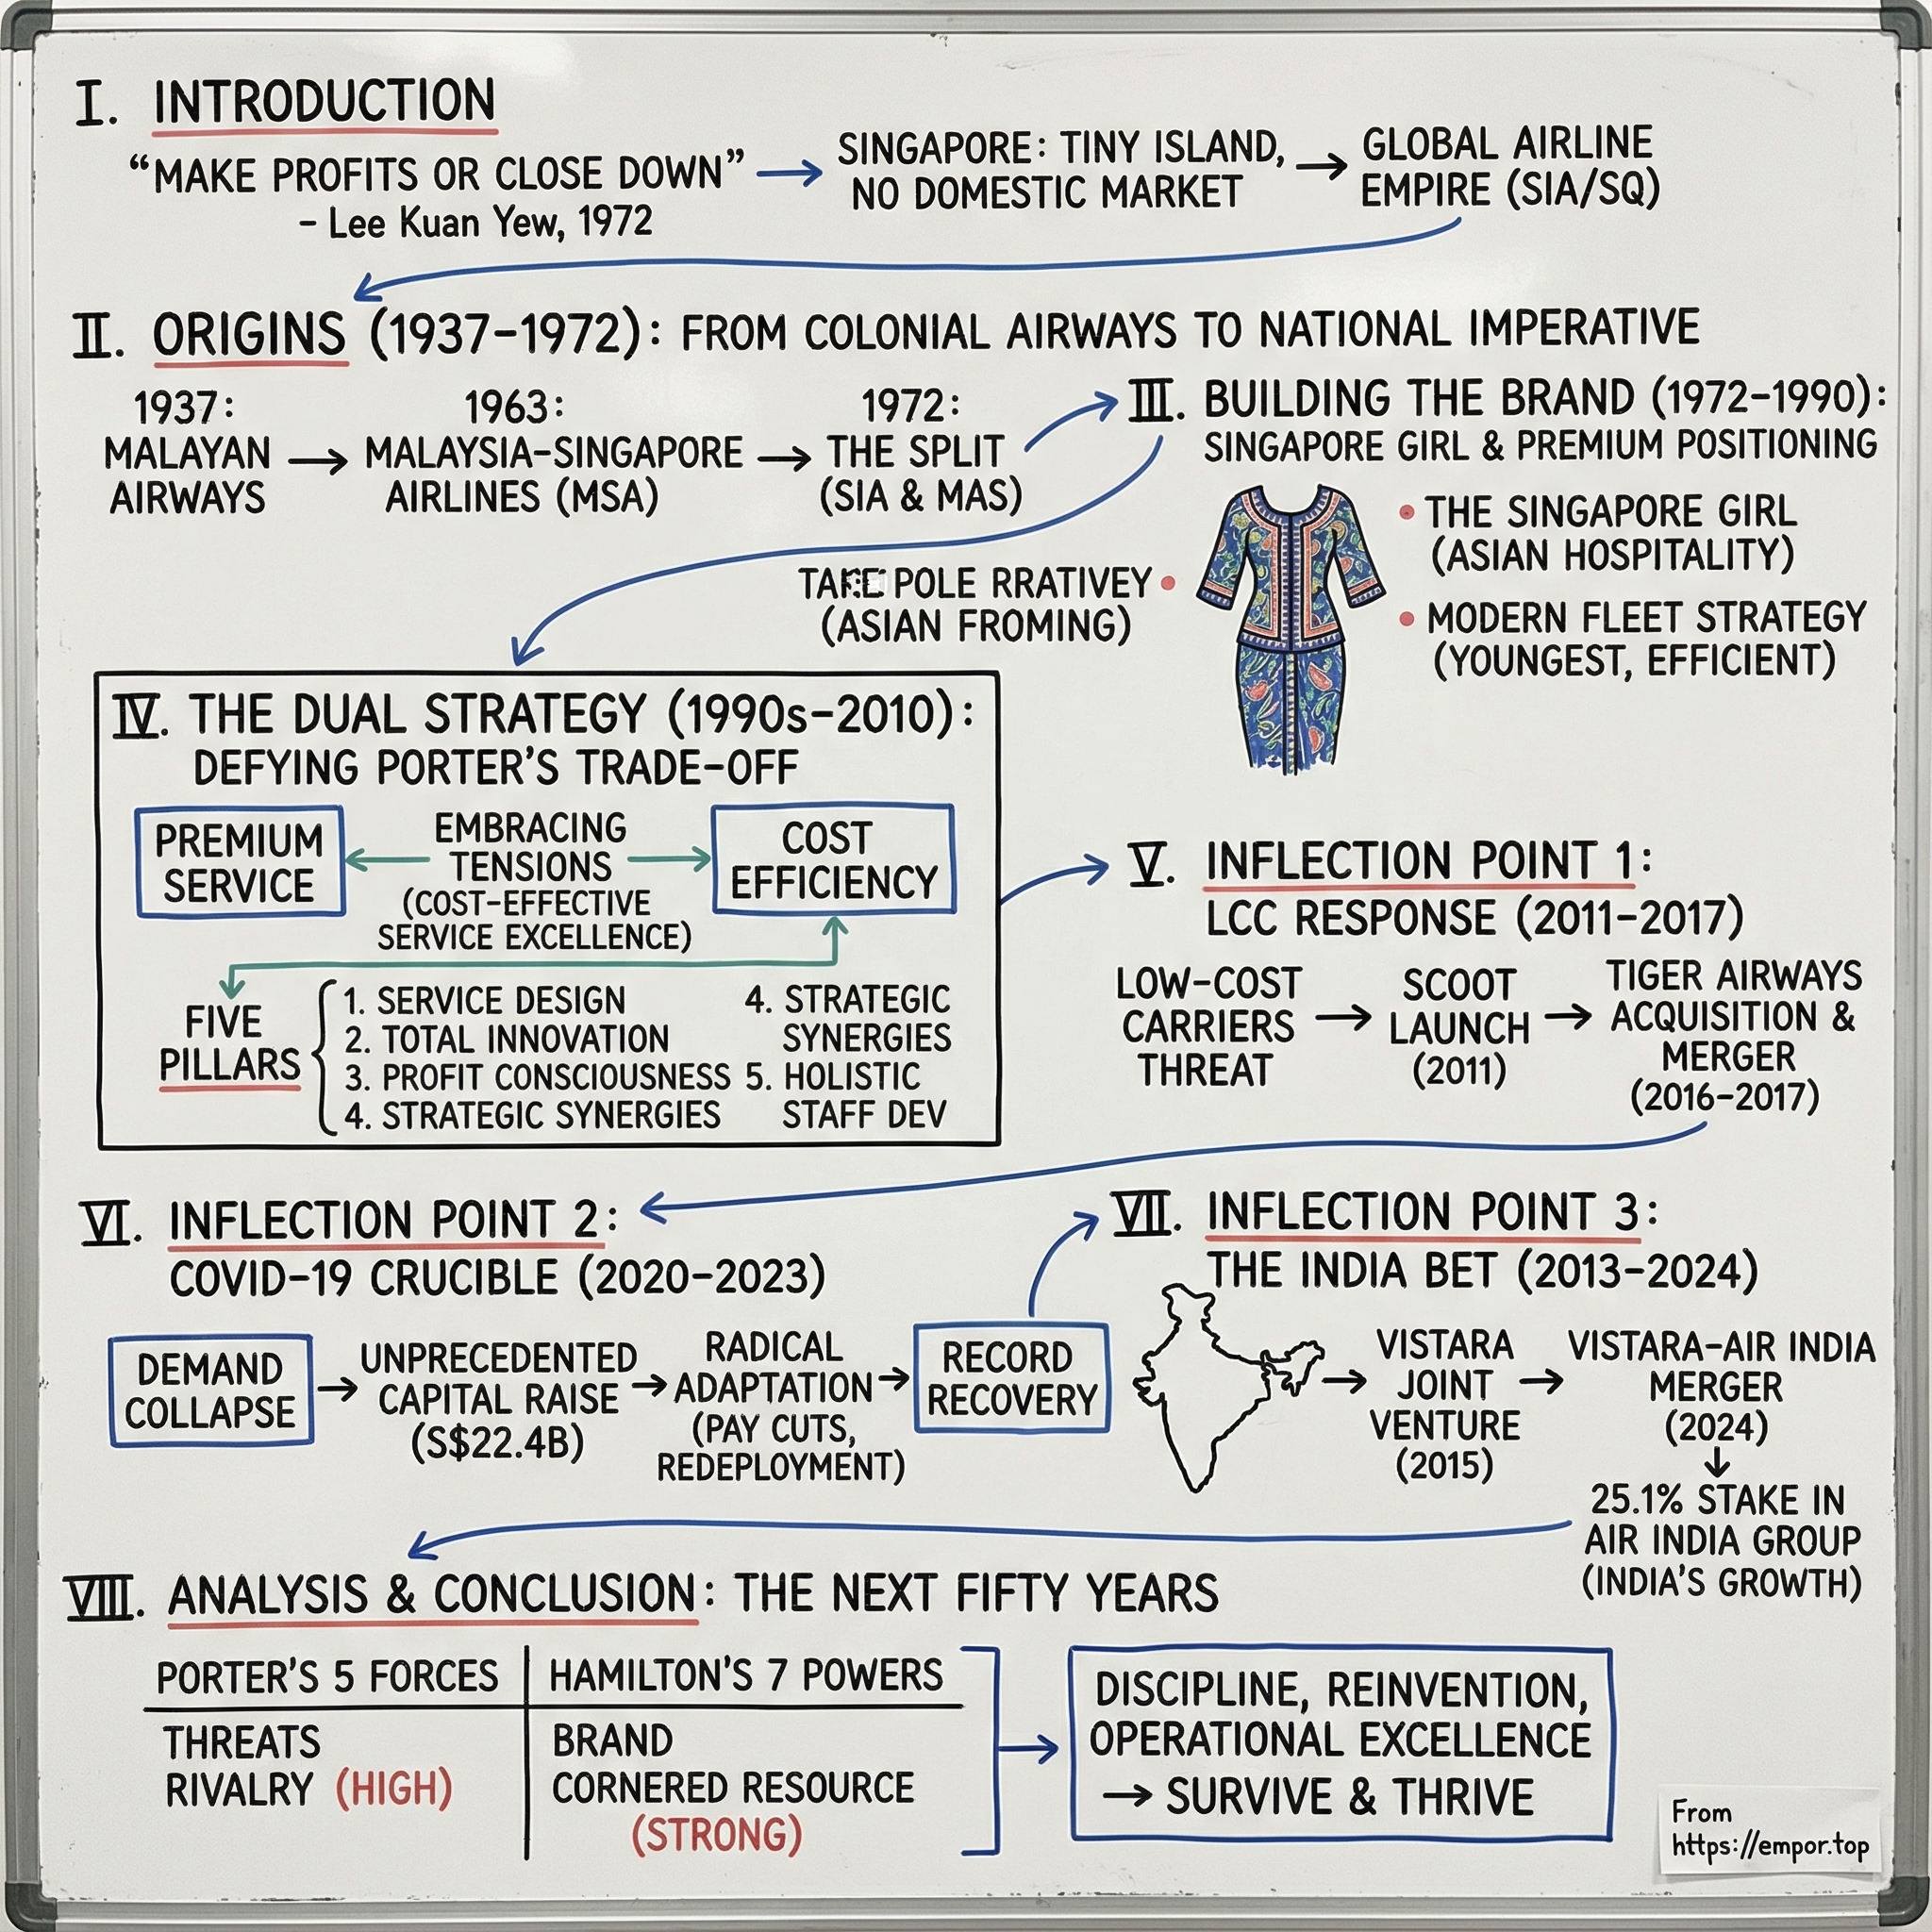 I. INTRODUCTION
“MAKE PROFITS OR CLOSE DOWN”
– Lee Kuan Yew, 1972
SINGAPORE: TINY ISLAND,
NO DOMESTIC MARKET
GLOBAL AIRLINE
EMPIRE (SIA/SQ)
II. ORIGINS (1937–1972): FROM COLONIAL AIRWAYS TO NATIONAL IMPERATIVE
1937:
MALAYAN
AIRWAYS
1963:
MALAYSIA–SINGAPORE
AIRLINES (MSA)
1972:
THE SPLIT
(SIA & MAS)
III. BUILDING THE BRAND (1972–1990):
SINGAPORE GIRL & PREMIUM POSITIONING
• THE SINGAPORE GIRL
(ASIAN HOSPITALITY)
• MODERN FLEET STRATEGY
(YOUNGEST, EFFICIENT)
POLE RRATIVEY •
(ASIAN FROMING)
IV. THE DUAL STRATEGY (1990s–2010):
DEFYING PORTER’S TRADE-OFF
PREMIUM
SERVICE
EMBRACING
TENSIONS
(COST-EFFECTIVE
SERVICE EXCELLENCE)
COST
EFFICIENCY
FIVE
PILLARS
1. SERVICE DESIGN
2. TOTAL INNOVATION
3. PROFIT CONSCIOUSNESS
4. STRATEGIC SYNERGIES
4. STRATEGIC
SYNERGIES
5. HOLISTIC
STAFF DEV
V. INFLECTION POINT 1:
LCC RESPONSE (2011–2017)
LOW-COST
CARRIERS
THREAT
SCOOT
LAUNCH
(2011)
TIGER AIRWAYS
ACQUISITION &
MERGER
(2016–2017)
VI. INFLECTION POINT 2:
COVID-19 CRUCIBLE (2020–2023)
DEMAND
COLLAPSE
UNPRECEDENTED
CAPITAL RAISE
(S$22.4B)
RADICAL
ADAPTATION
(PAY CUTS,
REDEPLOYMENT)
RECORD
RECOVERY
VII. INFLECTION POINT 3:
THE INDIA BET (2013–2024)
VISTARA
JOINT
VENTURE
(2015)
VISTARA–AIR INDIA
MERGER
(2024)
25.1% STAKE IN
AIR INDIA GROUP
(INDIA’S GROWTH)
VIII. ANALYSIS & CONCLUSION: THE NEXT FIFTY YEARS
PORTER’S 5 FORCES
THREATS
RIVALRY (HIGH)
HAMILTON’S 7 POWERS
BRAND
CORNERED RESOURCE
(STRONG)
DISCIPLINE, REINVENTION,
OPERATIONAL EXCELLENCE
→ SURVIVE & THRIVE
From
https://empor.top